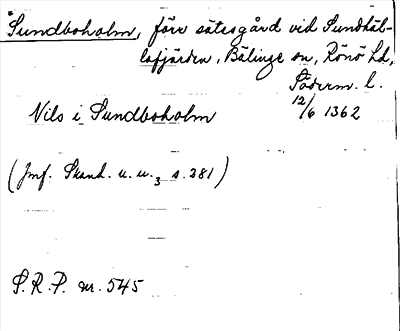 *Sundboholm, förr sätesgård vid Sundbåt-
lafjärden, Bälinge sn, Rönö hd,
Söderm. l.
Nils i Sundboholm 12/6 1362
(Jmf. Skand. u. u. 3 s. 281)
S.R.P. nr. 545